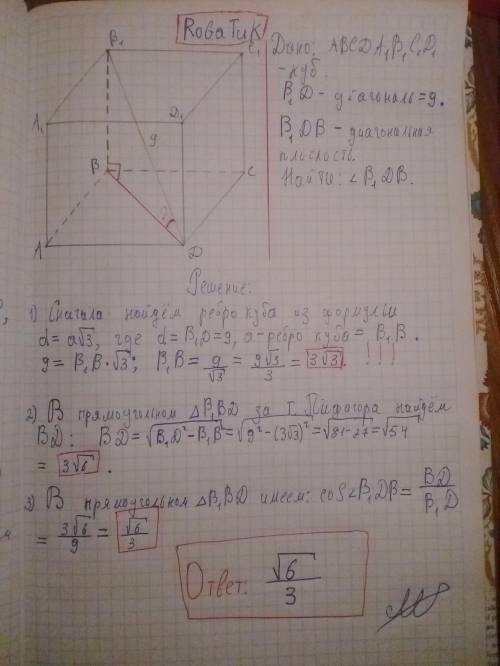 RoваTиK
Дано: ABCDA₁B₁C₁D₁
- куб.
B₁D - диагональ = 9.
B₁DB - диагональная
плоскость.
Найти: ∠B₁DB.
B₁
C₁
A₁
D₁
9
B
C
?
A
D
Решение:
1) Сначала найдём ребро куба из формулы
d = a√3, где d = B₁D = 9, a - ребро куба = B₁B.
9 = B₁B·√3; B₁B = 9/√3 = 9√3/3 = 3√3. !!!
2) В прямоугольном △B₁BD за Т. Пифагора найдём
BD: BD = √(B₁D² - B₁B²) = √(9² - (3√3)²) = √(81 - 27) = √54
= 3√6.
3) В прямоугольном △B₁BD имеем: cos∠B₁DB = BD/B₁D
= 3√6/9 = √6/3
Ответ: √6/3